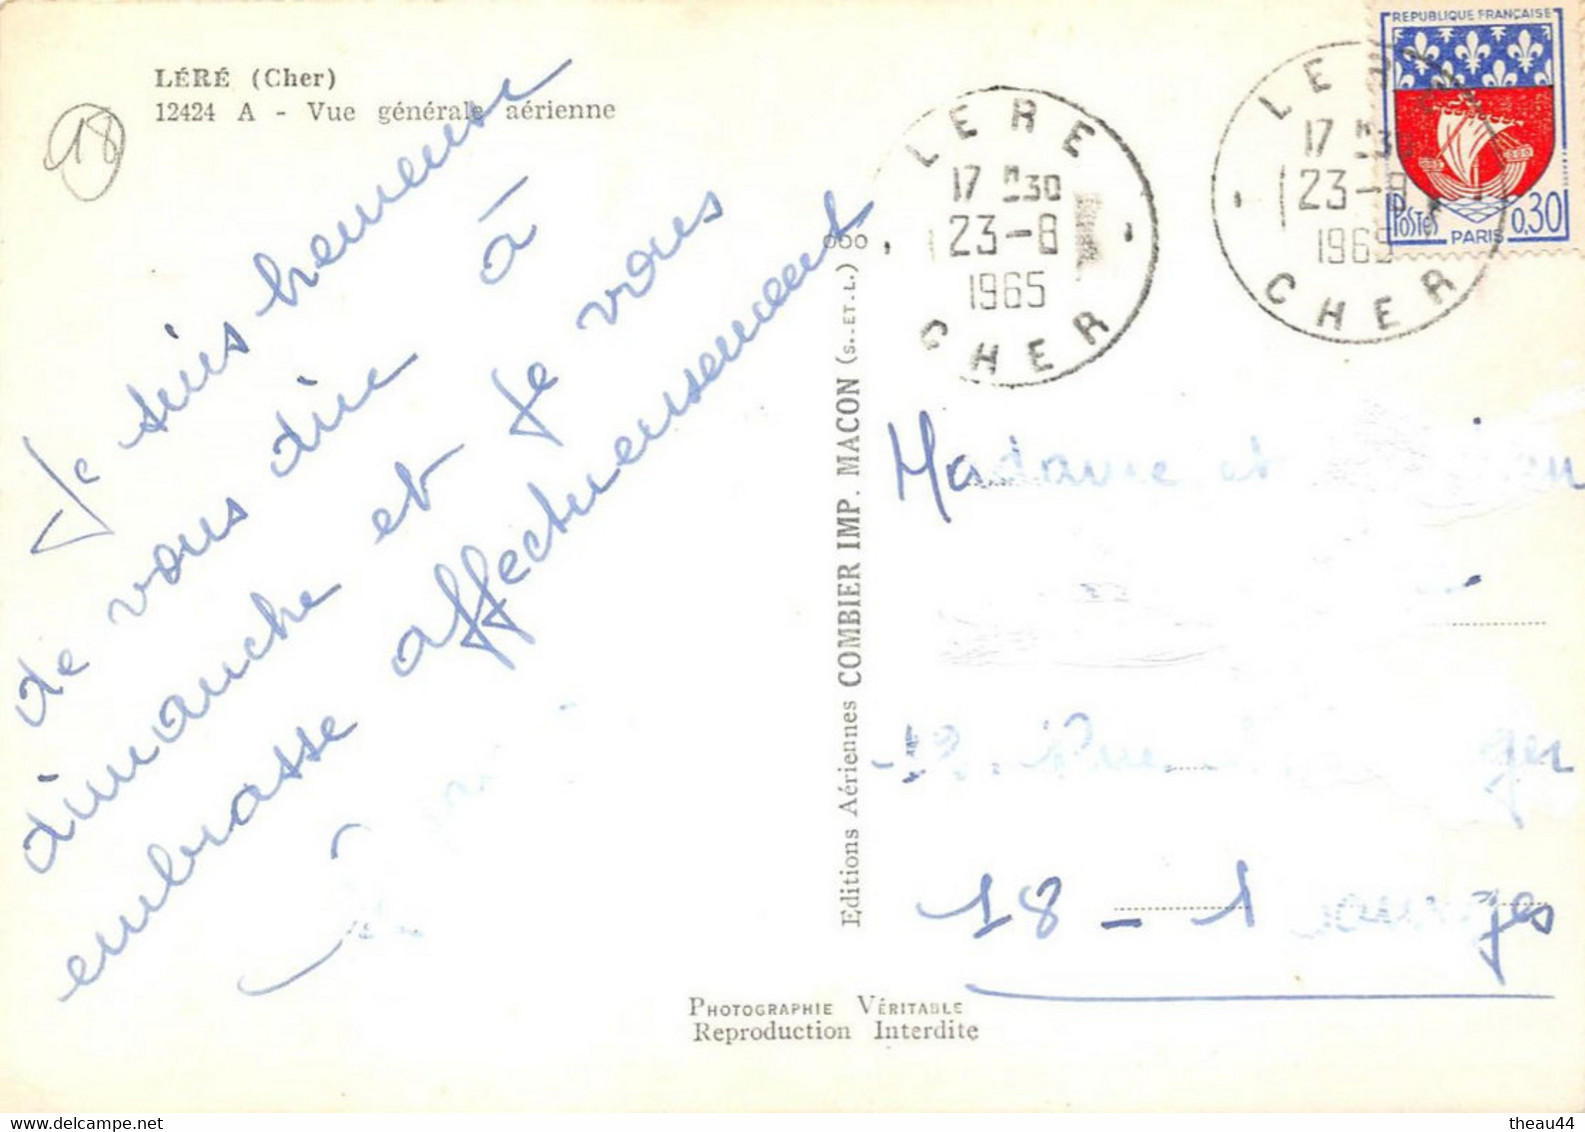 LÉRÉ (Cher)
12424 A - Vue générale aérienne
18
Je suis heureuse
de vous dire à
dimanche et je vous
embrasse affectueusement
Editions Aériennes COMBIER IMP. MACON (S.-ET-L.)
LERE
17 H 30
23-8
1965
CHER
LERE
17 H 30
23-8
1965
CHER
REPUBLIQUE FRANÇAISE
POSTES
PARIS
0,30
Madame et
Rue
18 - Bourges
PHOTOGRAPHIE VÉRITABLE
Reproduction Interdite
theau44